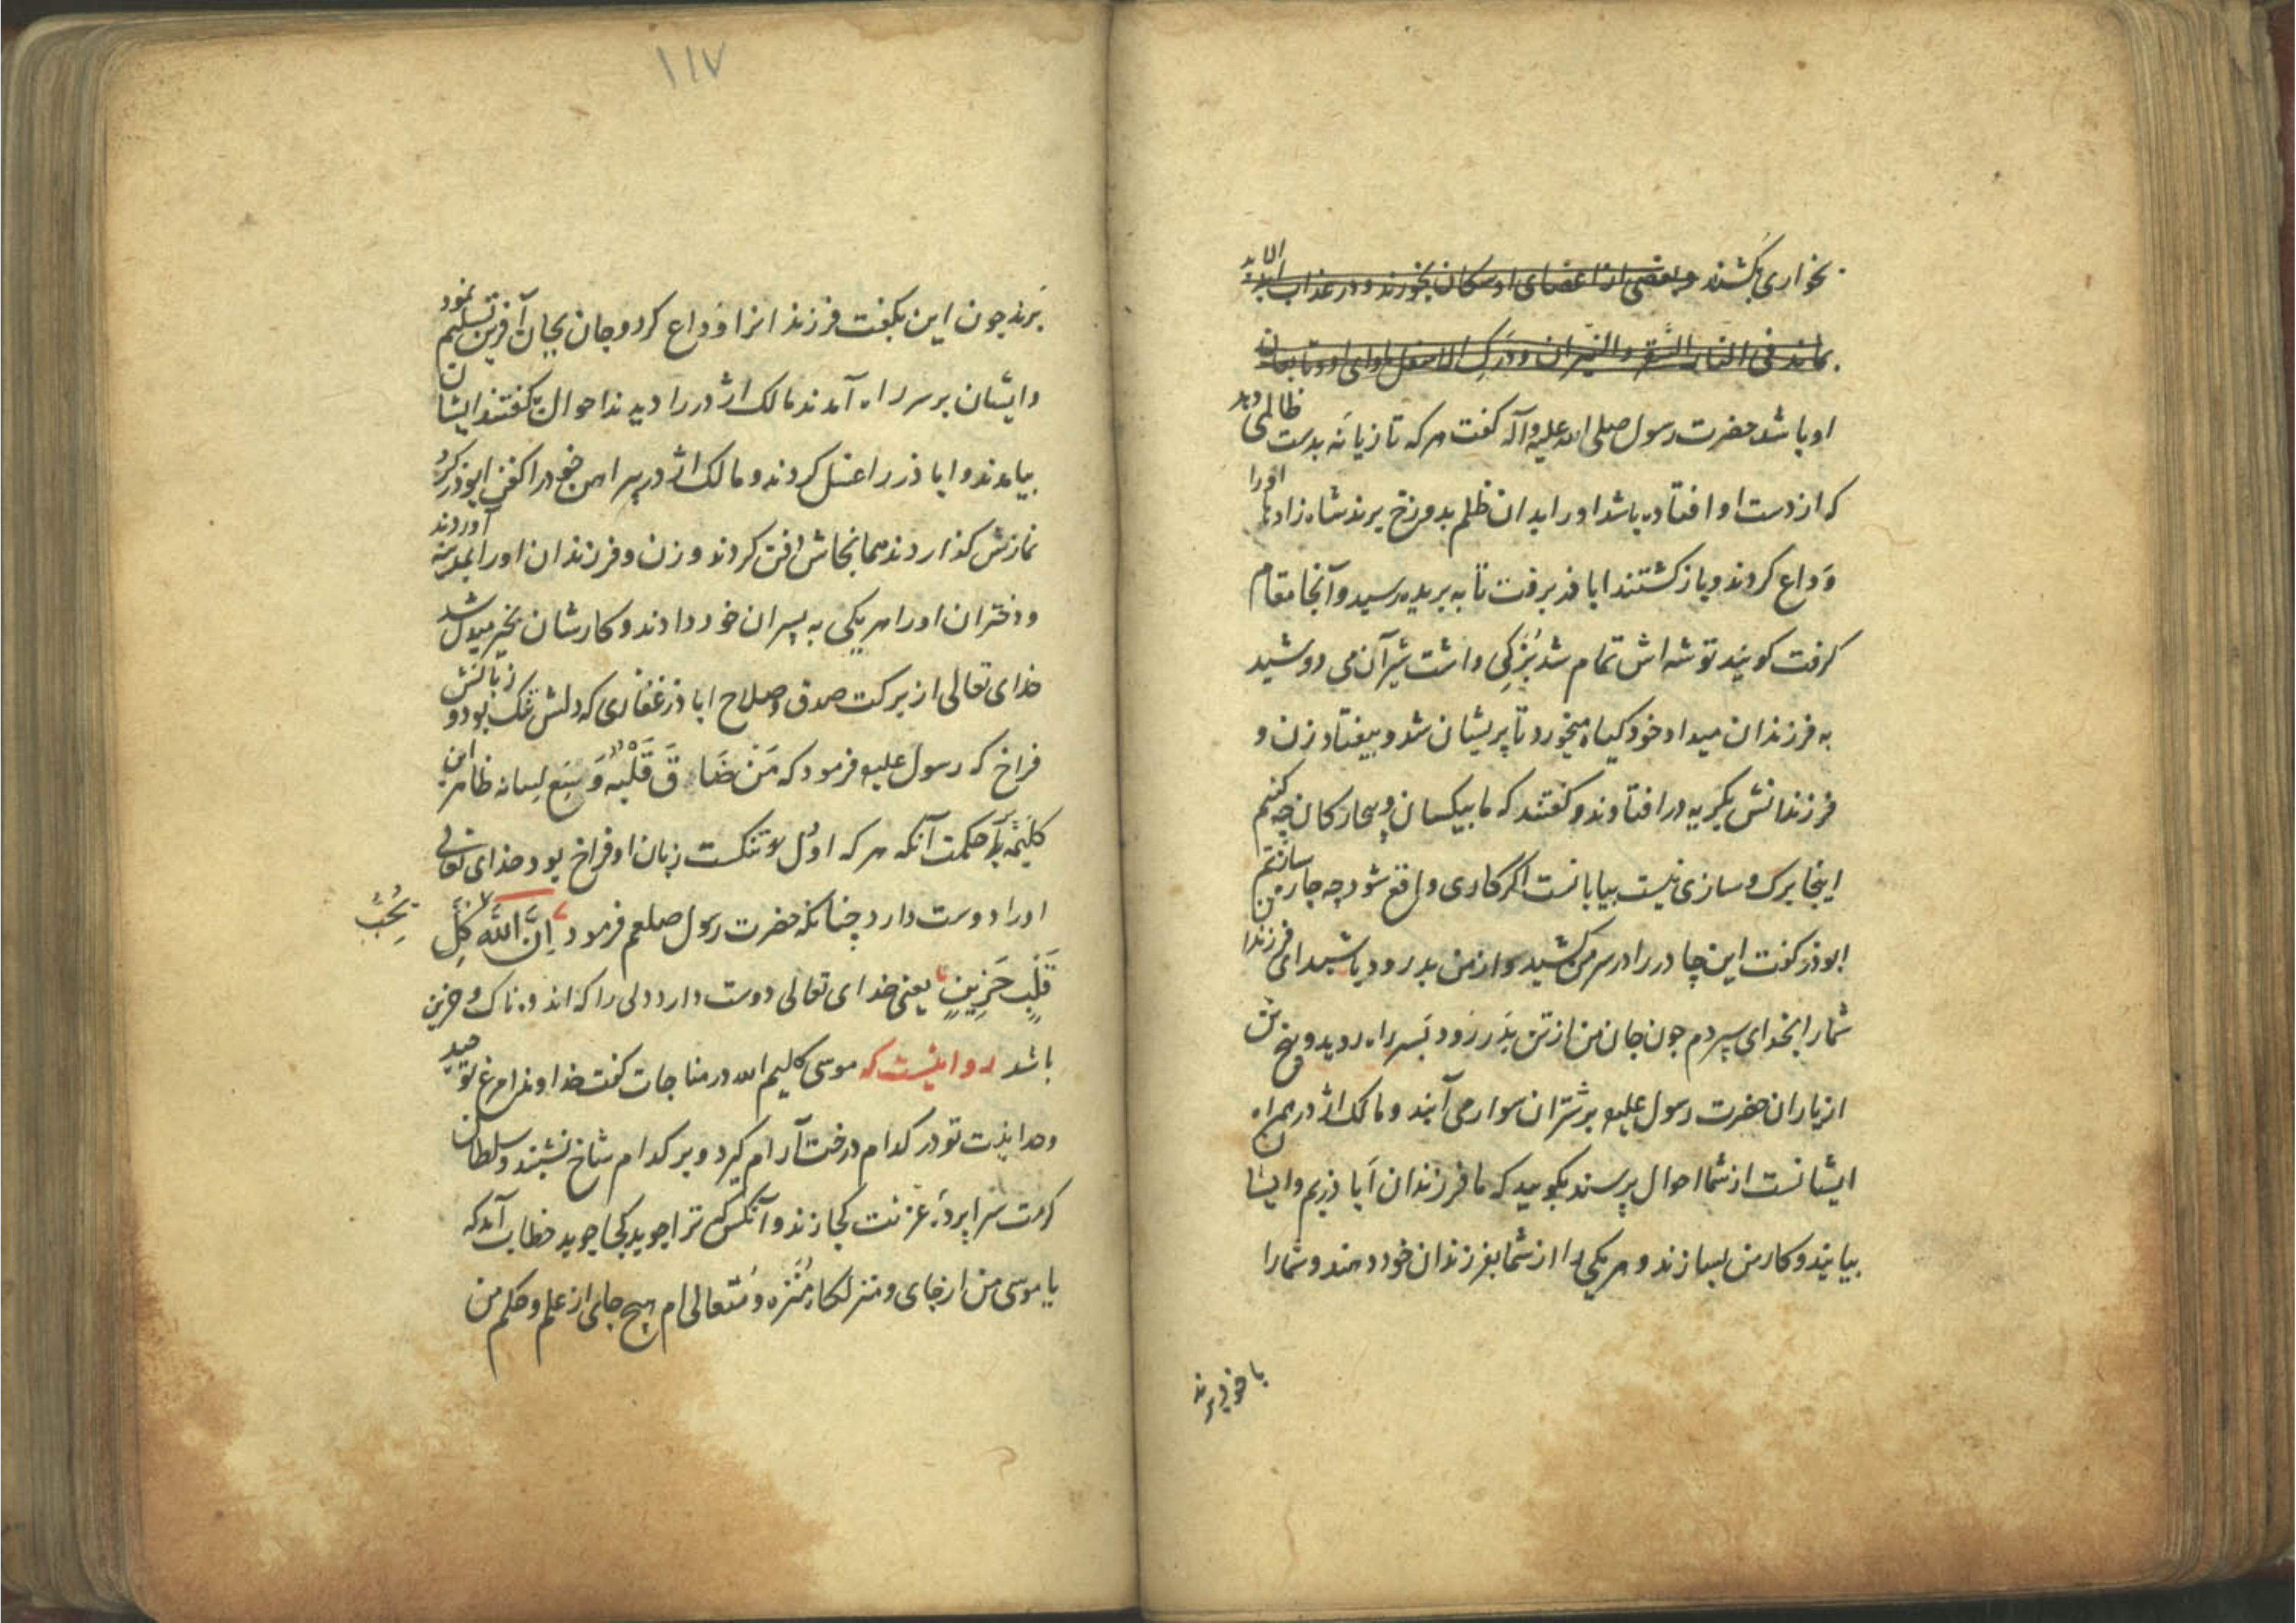 بخواری بکشند و بعضی از اعضای او سکان بخورند و در عذاب ابد الابد
بماند فی النار السقر و النیران و درک الاسفل ماوای او و تابعان
او باشد حضرت رسول صلی الله علیه و آله کفت هر که تازیانه بدست ظالمی دهد
که از دست او افتاده باشد او را بدان ظلم بدوزخ برند شاه زادها او را
وَداع کردند و بازکشتند ابا ذر برفت تا به بریده رسید و آنجا مقام
کرفت کویند توشه اش تمام شد بُزَکِی داشت شیر آن می دوشید
به فرزندان میداد خود کیاه میخورد تا پریشان شد و بیفتاد زن و
فرزندانش بکریه در افتادند و کفتند که ما بیکسان و بیچارکان چه کنیم
اینجا برک و سازی نیست بیابانست اکر کاری واقع شود چه چاره سازیم من
ابوذر کفت این چادر را در سر من کشید و از من بدرود باشید ای فرزندان
شما را بخدای سپردم جون جان من از تن بَدَر رَود بَسر راه روید و پنج تن
از یاران حضرت رسول علیه بر شتران سوار می آیند و مالک اژدر همراه
ایشانست از شما احوال پرسند بکویید که ما فرزندان اَبا ذریم و ایشان
بیایند و کار من بسازند و هر یکی را از شما بفرزندان خود دهند و شما را
با خود برند
۱۱۷
بَرند جون این بکفت فرزندانرا وَداع کرد و جان بجان آفرین تسلیم نمود
و ایشان بر سر راه آمدند مالک اژدر را دیدند احوال بکفتند ایشان
بیامدند و ابا ذر را غسل کردند و مالک اژدر پیراهن خود را کفن ابوذر کرد
نمازش کذاردند همانجاش دفن کردند و زن و فرزندان او را بمدینه آوردند
و دختران او را هر یکی به پسران خود دادند و کارشان بخیر مبدل شد
خدای تعالی از برکت صدق و صلاح ابا ذر غفاری که دلش تنک بود و زبانش
فراخ که رسول علیه فرمود که مَنْ ضَاقَ قَلْبُهُ وَسِیَع لِسانه ظاهر این
کلیمهٔ حکمت آنکه هر که او دل او تنکست زبان او فراخ بود خدای تعالی
او را دوست دارد چنانکه حضرت رسول صلعم فرمود اِنَّ اللّٰه کُلِّ
یُحِبُّ
قَلْبٍ حَزِینٍ یعنی خدای تعالی دوست دارد دلی را که اندوه ناک و حزین
باشد روایتست که موسی کلیم الله در مناجات کفت خداوندا مرغ توحید
وحدانیت تو در کدام درخت آرام کیرد و بر کدام شاخ نشیند و سلطان
کرمت سراپردهٔ عزتت کجا زند و آنکس که ترا جوید کجا جوید خطاب آمد که
یا موسی من از جای و منزلکاه مُنَزه و مُتَعالی ام هیچ جای از علم و حکم من